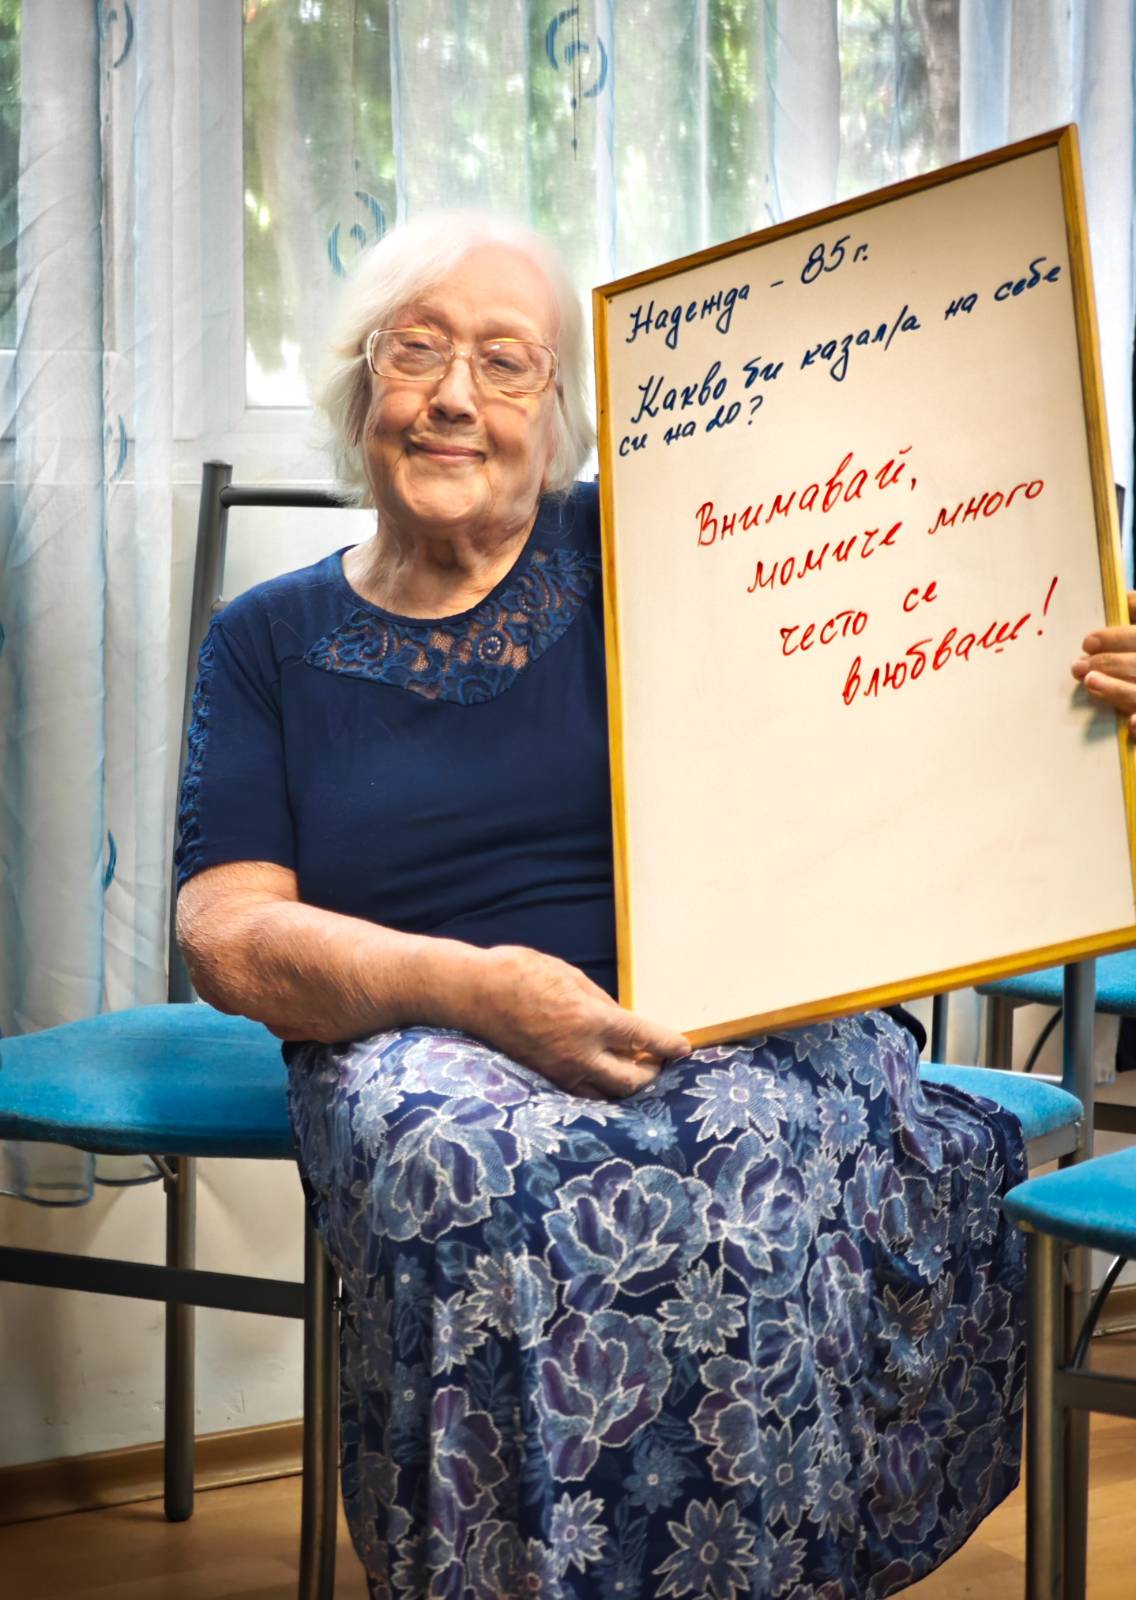 Надежда - 85 г.
Какво би казал/а на себе
си на 20?
Внимавай,
момиче много
често се
влюбваш!